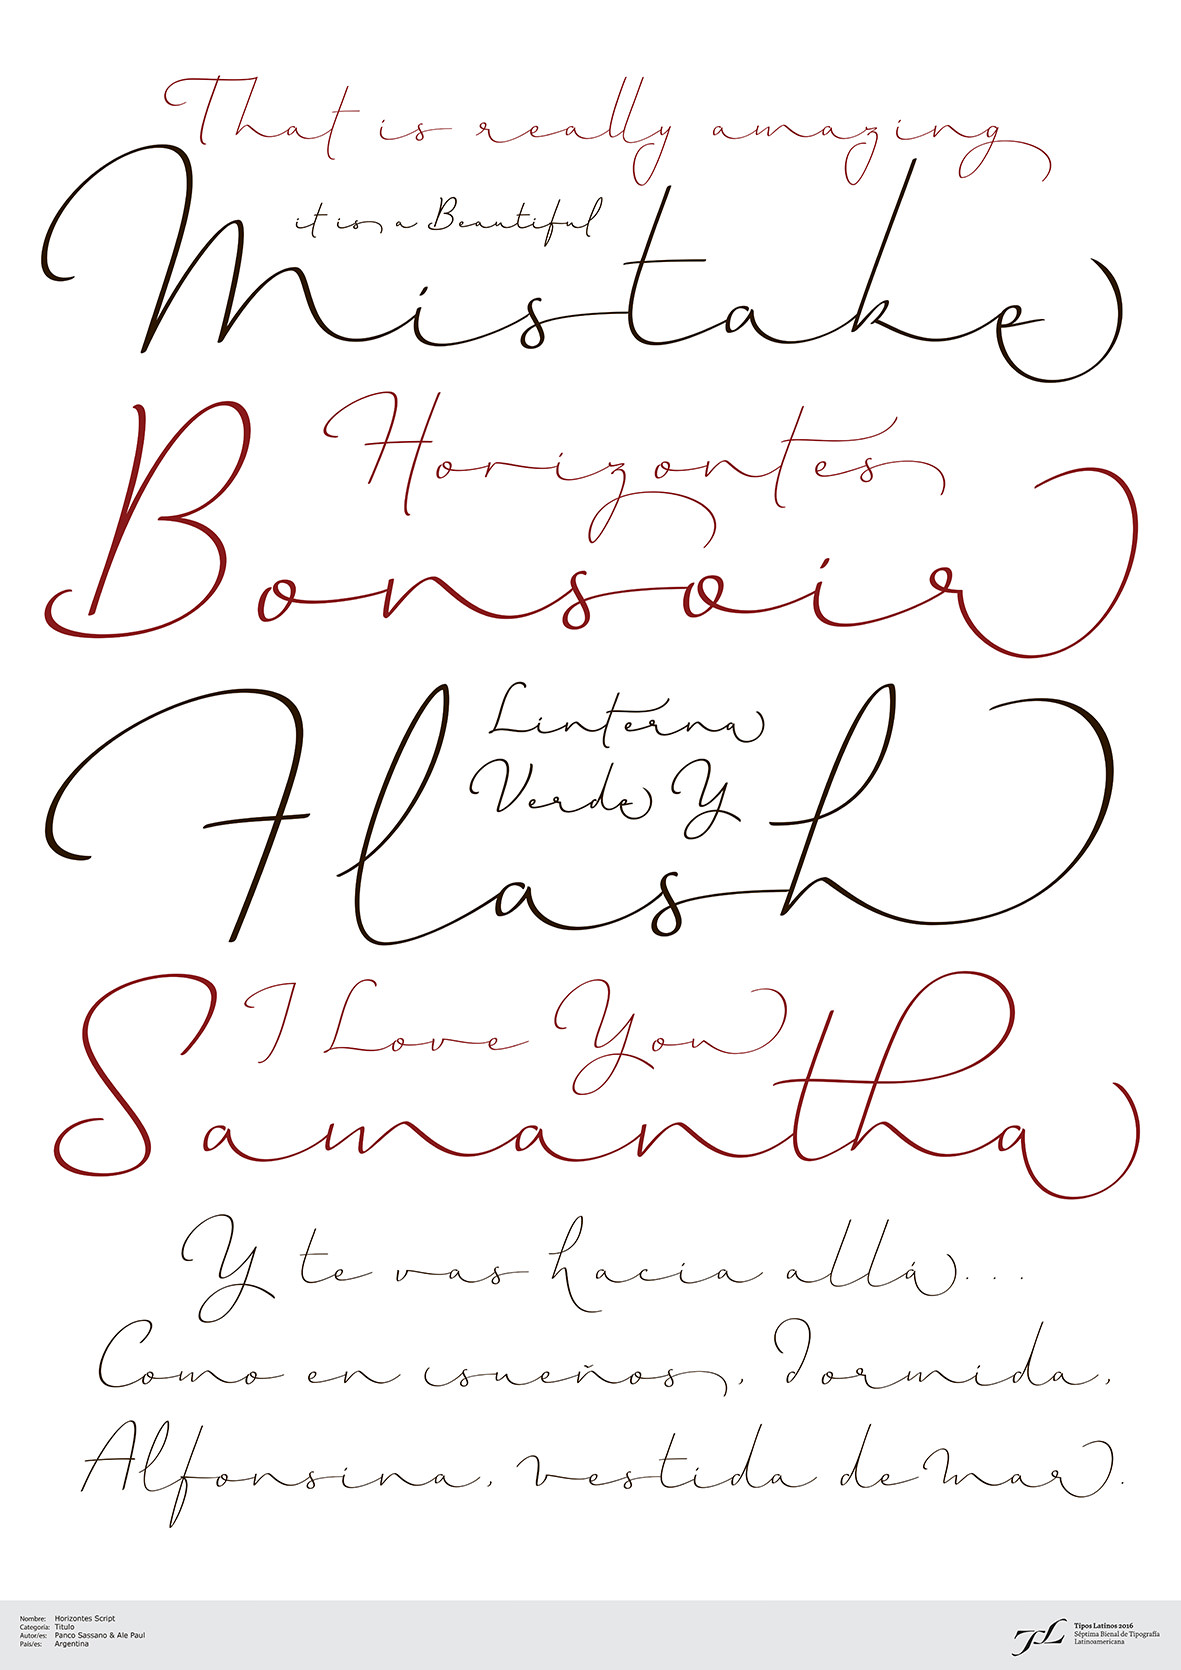 That is really amazing
it is a Beautiful
Mistake
Horizontes
Bonsoir
Linterna
Verde Y
Flash
I Love You
Samantha
Y te vas hacia allá...
Como en sueños, Dormida,
Alfonsina, vestida de mar.
Nombre: Horizontes Script
Categoria: Titulo
Autor/es: Panco Sassano & Ale Paul
País/es: Argentina
TL
Tipos Latinos 2016
Séptima Bienal de Tipografía
Latinoamericana